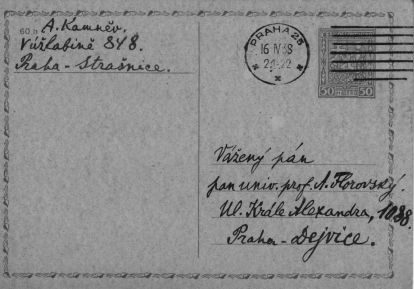 60 h A. Kamněv.
Vúžlabině 848.
Praha - Strašnice.
PRAHA 25
16 IV 38
21-22
50 50
Vážený pán
pan univ. prof. A. Florovský.
Ul. Krále Alexandra, 1038.
Praha - Dejvice.